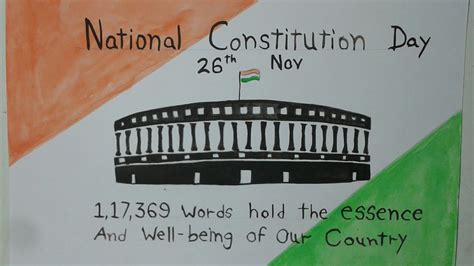 National Constitution Day
26th Nov
1,17,369 Words hold the essence
And Well-being of Our Country